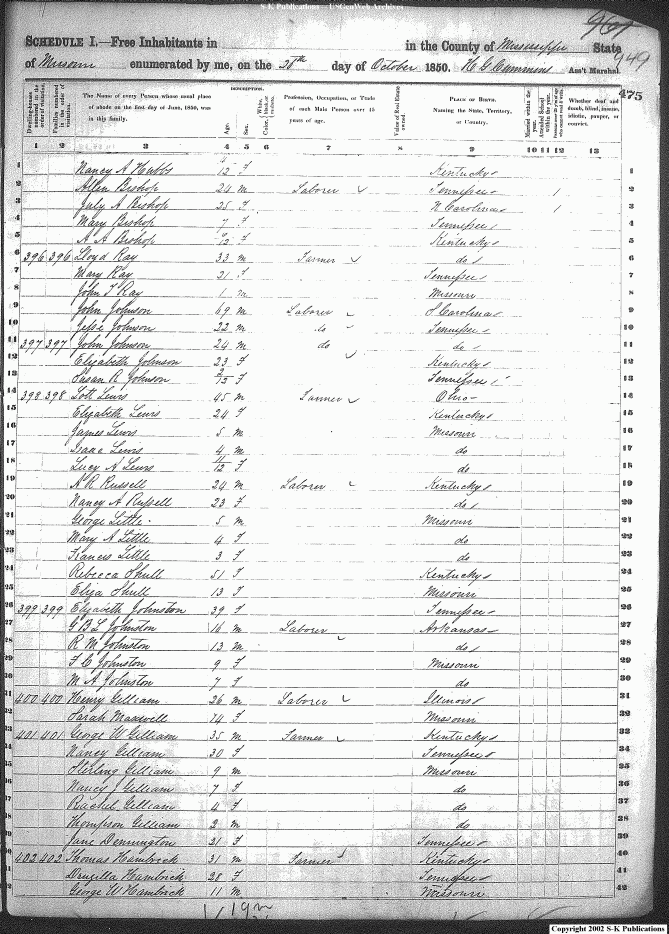 S-K Publications - USGenWeb Archives
961
949
SCHEDULE I.—Free Inhabitants in in the County of Mississippi State
of Missouri enumerated by me, on the 30th day of October 1850. H G Cummins Ass't Marshal.
475
DESCRIPTION.
Dwelling-houses numbered in the order of visitation. Families numbered in the order of visitation. The Name of every Person whose usual place of abode on the first day of June, 1850, was in this family. Age. Sex. Color. Profession, Occupation, or Trade of each Male Person over 15 years of age. Value of Real Estate owned. PLACE OF BIRTH. Naming the State, Territory, or Country. Married within the year. Attended School within the year. Whether deaf and dumb, blind, insane, idiotic, pauper, or convict.
1 2 3 4 5 6 7 8 9 10 11 12 13
1 Nancy A Hubbs /12 F Kentucky 1
2 Allen Bishop 24 m Laborer Tennessee 1 2
3 July A Bishop 25 F N Carolina 1 3
4 Mary Bishop 7 F Tennessee 4
5 A A Bishop /12 F Kentucky 5
6 396 396 Lloyd Ray 33 m Farmer do 6
7 Mary Ray 21 F Tennessee 7
8 John T Ray 1 m Missouri 8
9 John Johnson 69 m Laborer S Carolina 9
10 Jesse Johnson 22 m do Tennessee 10
11 397 397 John Johnson 24 m do do 11
12 Elizabeth Johnson 23 F Kentucky 12
13 Susan R Johnson 2/12 F Tennessee 13
14 398 398 Lott Lewis 45 m Farmer Ohio 14
15 Elizabeth Lewis 24 F Kentucky 15
16 James Lewis 5 m Missouri 16
17 Isaac Lewis 4 m do 17
18 Lucy A Lewis 11/12 F do 18
19 A R Russell 24 m Laborer Kentucky 19
20 Nancy A Russell 23 F do 20
21 George Little 5 m Missouri 21
22 Mary A Little 4 F do 22
23 Francis Little 3 F do 23
24 Rebecca Shull 51 F Kentucky 24
25 Eliza Shull 13 F Missouri 25
26 399 399 Elizabeth Johnston 39 F Tennessee 26
27 G B L Johnston 16 m Laborer Arkansas 27
28 R M Johnston 13 m do 28
29 F C Johnston 9 F Missouri 29
30 M A Johnston 7 F do 30
31 400 400 Henry Gilliam 26 m Laborer Illinois 31
32 Sarah Maxwell 74 F Missouri 32
33 401 401 George W Gilliam 35 m Farmer Kentucky 33
34 Nancy Gilliam 30 F Tennessee 34
35 Stirling Gilliam 9 m Missouri 35
36 Nancy J Gilliam 7 F do 36
37 Rachel Gilliam 4 F do 37
38 Thompson Gilliam 2 m do 38
39 Jane Dennington 21 F Tennessee 39
40 402 402 Thomas Hambrick 31 m Farmer Kentucky 40
41 Drucilla Hambrick 28 F Tennessee 41
42 George W Hambrick 11 m Missouri 42
Copyright 2002 S-K Publications